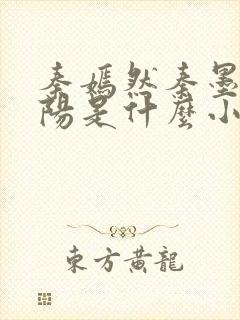 秦嫣然秦墨
陽是什麼小
東方黄龍